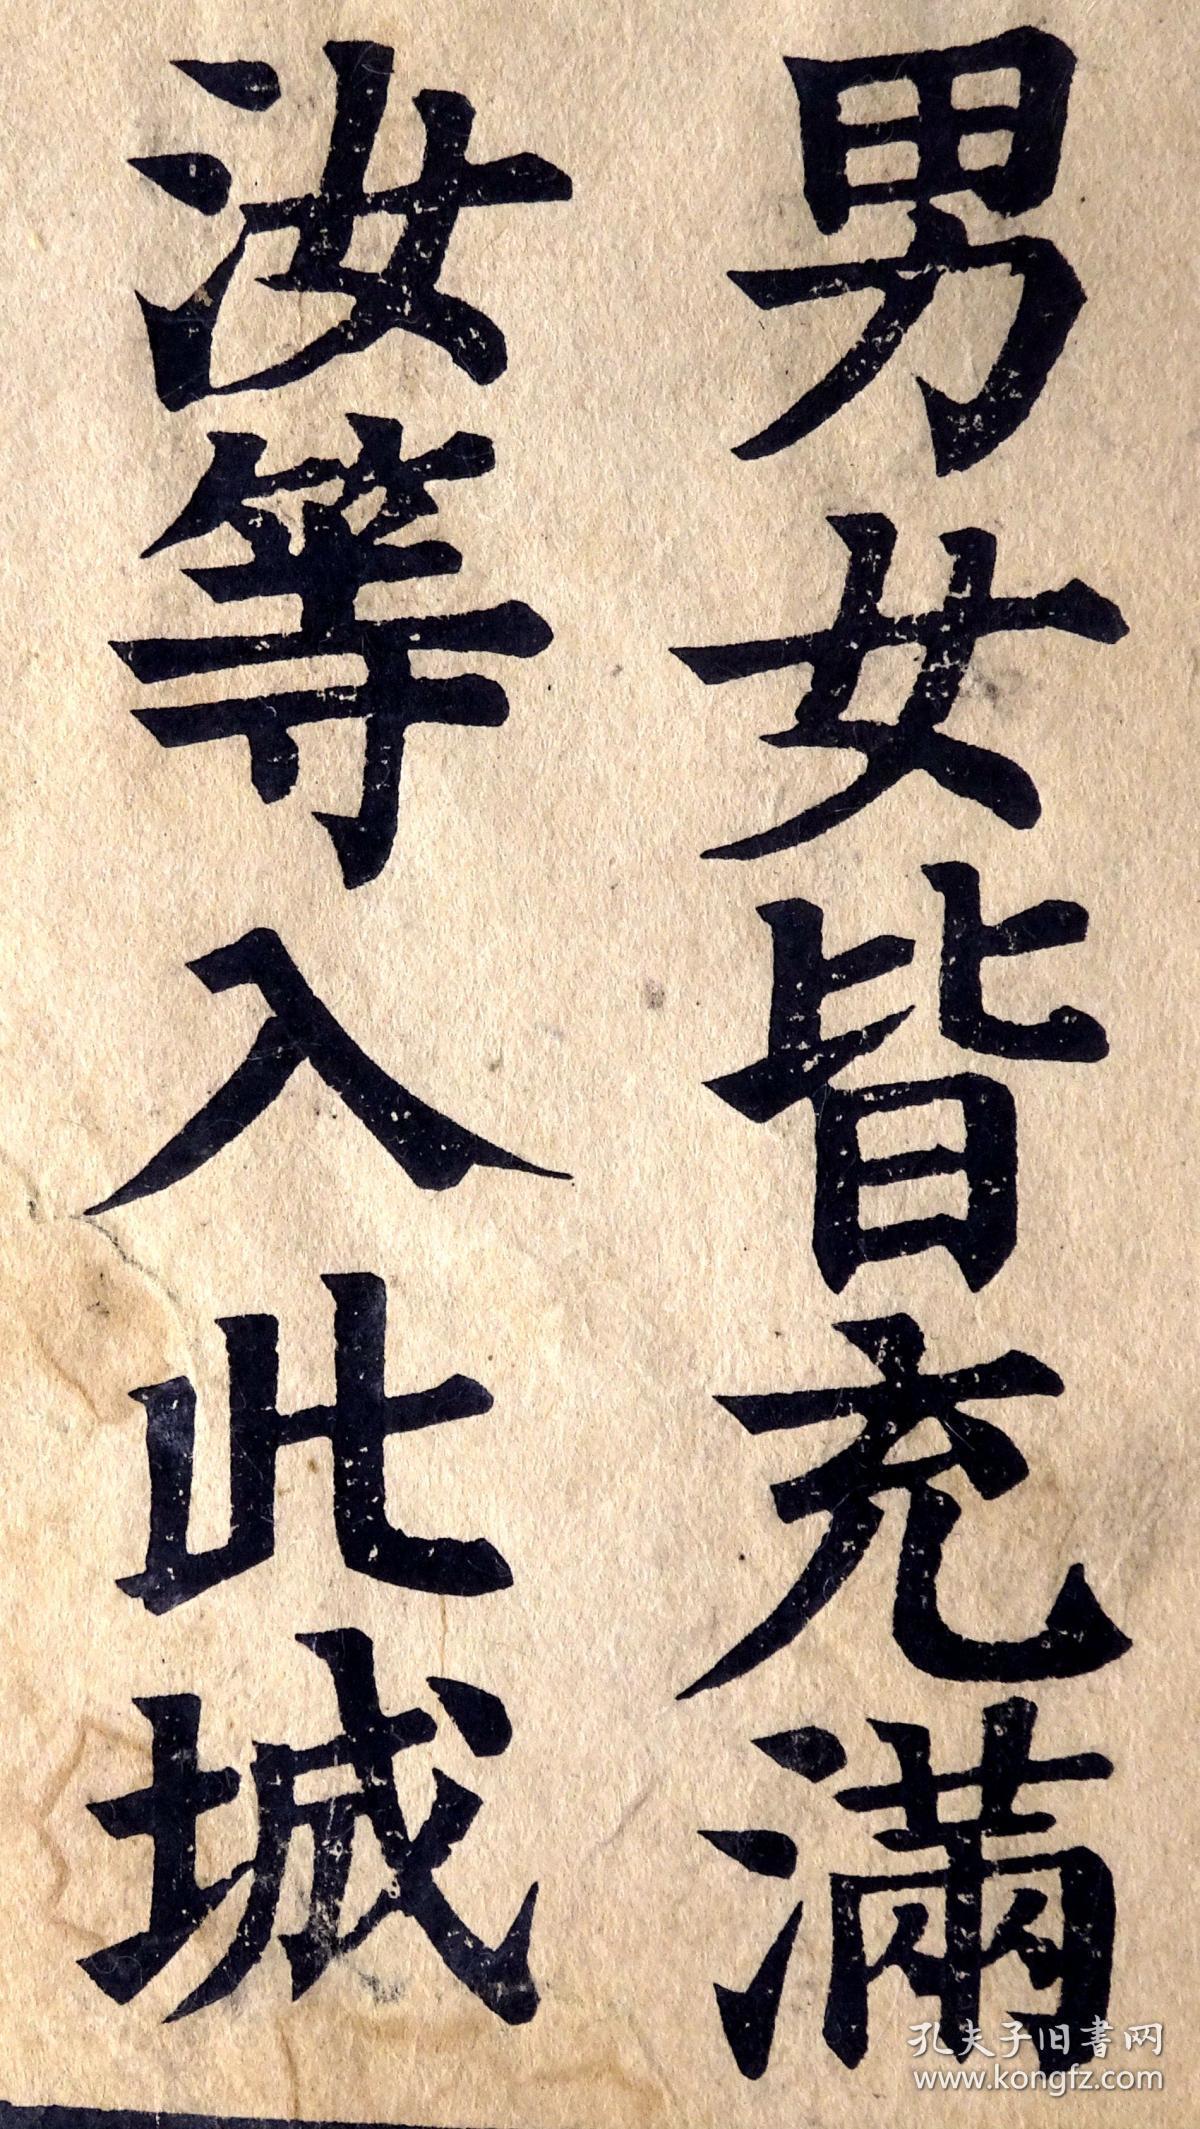 男女皆充滿
汝等入此城
孔夫子旧書网
www.kongfz.com